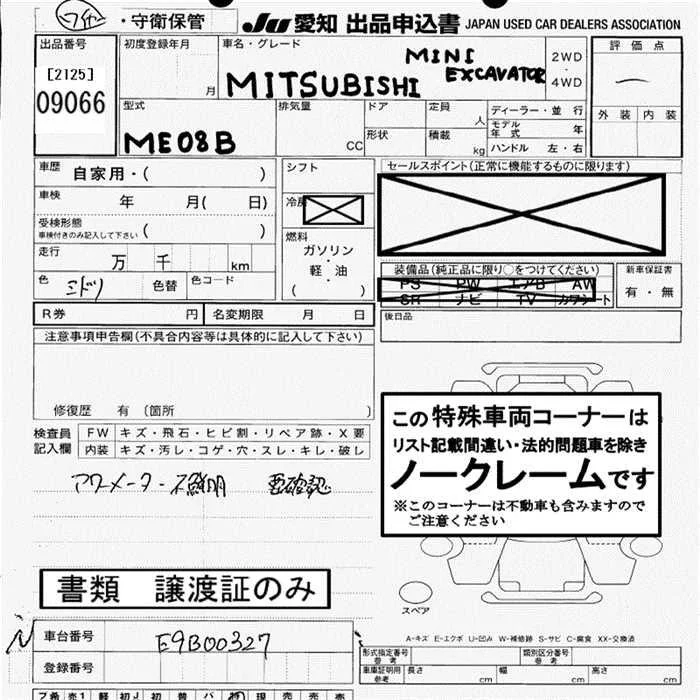 ・守衛保管 JU 愛知 出品申込書 JAPAN USED CAR DEALERS ASSOCIATION
出品番号 初度登録年月 車名・グレード 評価点
[2125] MINI 2WD
09066 月 MITSUBISHI EXCAVATOR ・ 4WD
型式 排気量 ドア 定員 人 ディーラー・並 行 外装 内装
モデル年式 年
ME08B CC 形状 積載 kg ハンドル 左・右
車歴 自家用・( ) シフト セールスポイント(正常に機能するものに限ります)
車検 年 月( 日) 冷房
受検形態
車検付きのみ記入して下さい ( ) 燃料
走行 万 千 km ガソリン
軽・油
( )
色 ミドリ 色替 色コード
装備品(純正品に限り○をつけてください) 新車保証書
PS PW エアB AW 有・無
SR ナビ TV カワシート
R券 円 名変期限 月 日 後日品
注意事項申告欄(不具合内容等は具体的に記入して下さい)
修復歴 有 (箇所 )
この特殊車両コーナーは
リスト記載間違い・法的問題車を除き
ノークレームです
※このコーナーは不動車も含みますので
ご注意ください
検査員 FW キズ・飛石・ヒビ割・リペア跡・X要
記入欄 内装 キズ・汚レ・コゲ・穴・スレ・キレ・破レ
アワーメーター不鮮明 要確認
書類 譲渡証のみ
スペア
車台番号 E9B00327
A-キズ E-エクボ U-凹み W-補修跡 S-サビ C-腐食 XX-交換済
登録番号
形式指定番号 参考 類別区分番号 参考
車庫証明用 参考 長さ cm 幅 cm 高さ cm